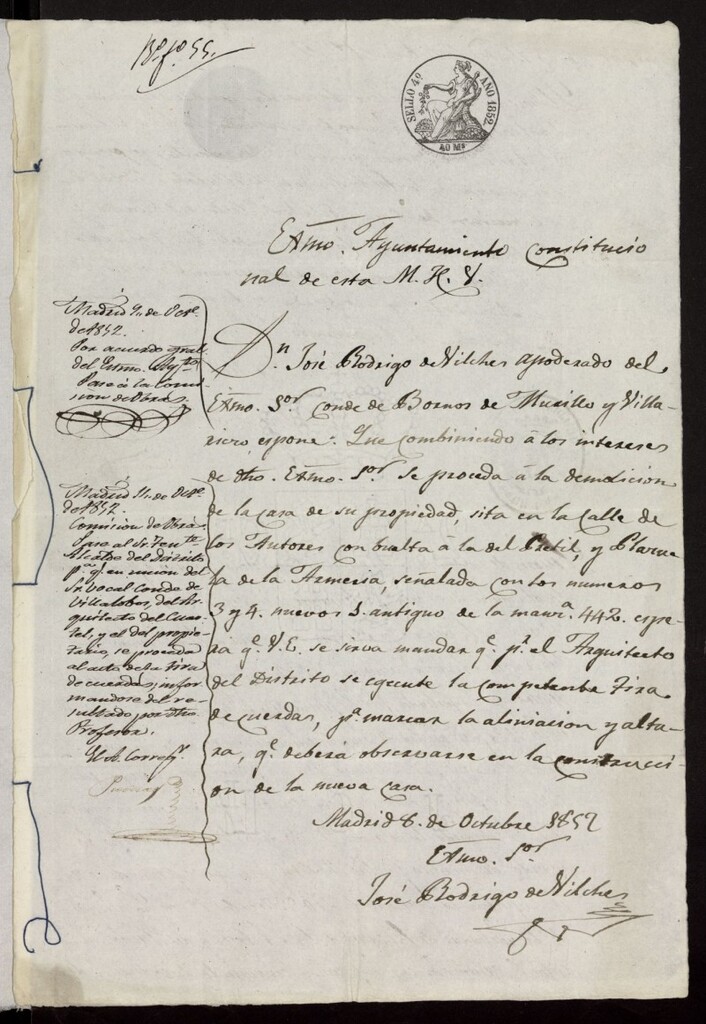 SELLO 4º AÑO 1852.
40 Ms
Exmo. Ayuntamiento constitucio
nal de esta M. H. V.
Dn José Rodrigo de Vilches apoderado del
Exmo. Sor Conde de Bornos de Murillo y Villa-
riero, espone: Que combiniendo á los intereses
de dho. Exmo. Sor se proceda á la demolicion
de la casa de su propiedad, sita en la Calle de
los Autores con buelta á la del Pretil, y Plazue
la de la Armeria, señalada con los numeros
3 y 4 nuevos 1. antiguo de la manza. 442. espe-
ra qe. V.E. se sirva mandar qe. pr. el Arquitecto
del Distrito se egecute la competente tira
de cuerdas, pa. marcar la aliniacion y altu-
ra, qe. deberá observarse en la construcci-
on de la nueva casa.
Madrid 8. de Octubre 1852
Exmo. Sor
José Rodrigo de Vilches
Madrid 9. de Octe.
de 1852.
Por acuerdo gral
del Exmo. Ayto
Pase á la Comi
sion de Obras.
Madrid 11. de Octe.
de 1852.
Comision de Obras
Pase al Sr. Tente
Alcalde del Distrito
pa. qe. en union del
Sr. Vocal Conde de
Villalobos, del Ar-
quitecto del Cuar-
tel, y el del propie-
tario, se proceda
al acto de la tira
de cuerdas; infor
mandose del re-
sultado por dho.
Profesor.